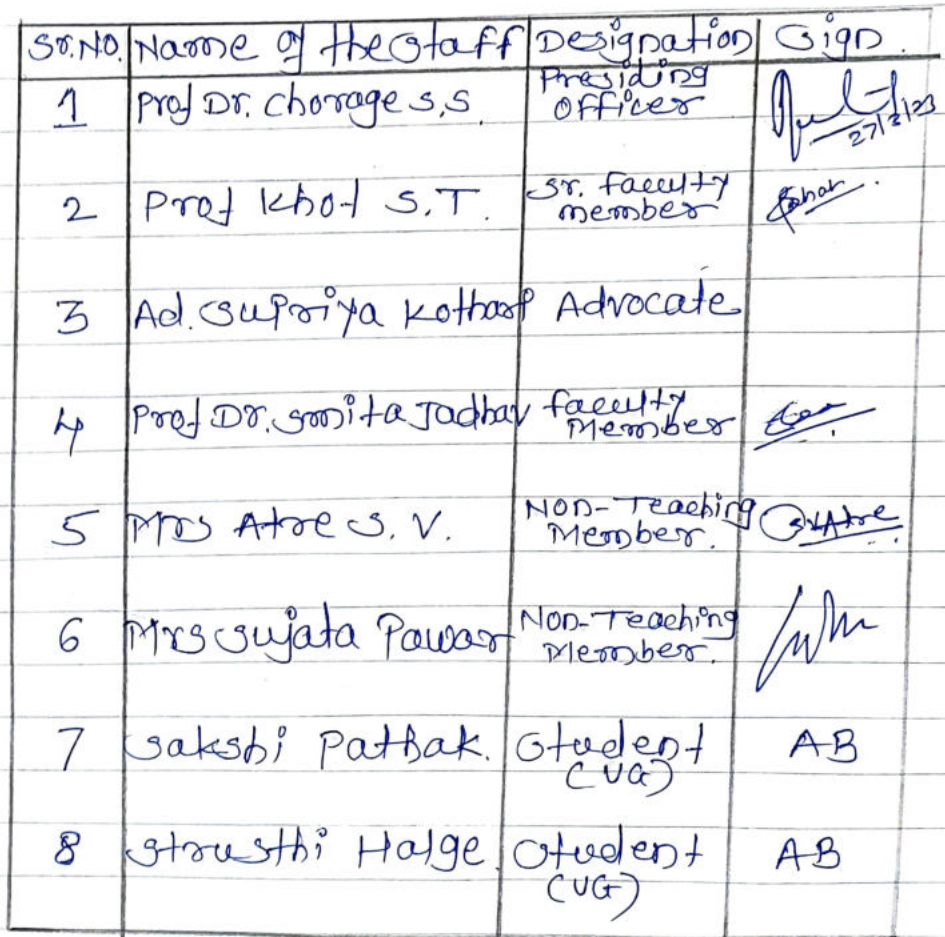 Sr.No. Name of the Staff Designation Sign.
1 Prof Dr. Chorage S.S. Presiding Officer 27/3/23
2 Prof Khot S.T. Sr. faculty member
3 Ad. Supriya Kothari Advocate
4 Prof Dr. Smita Jadhav faculty Member
5 Mrs Atre S.V. Non-Teaching Member. SVAtre
6 Mrs Sujata Pawar Non-Teaching Member.
7 Sakshi Pathak. Student (UG) AB
8 Strusthi Halge. Student (UG) AB